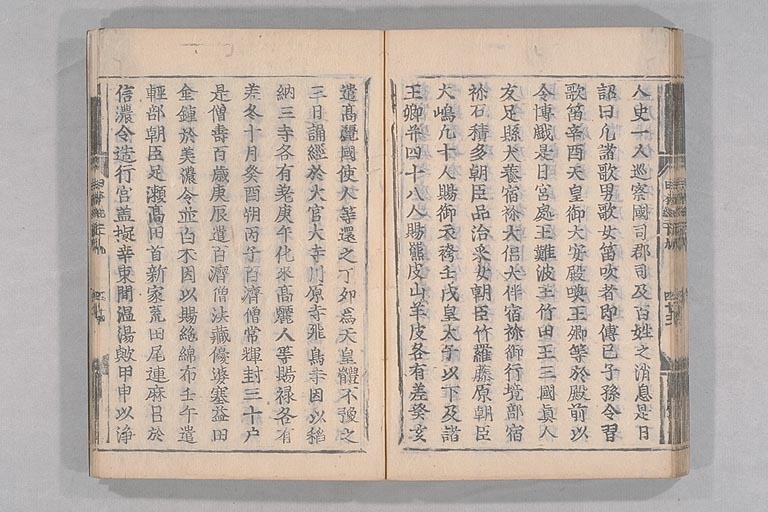 人史一人巡察國司郡司及百姓之消息是日
詔曰凡諸歌男歌女笛吹者即傳己子孫令習
歌笛辛酉天皇御大安殿喚王卿等於殿前以
令博戲是日宮處王難波王竹田王三國眞人
友足縣犬養宿祢大侶大伴宿祢御行境部宿
祢石積多朝臣品治采女朝臣竹羅藤原朝臣
大嶋凡十人賜御衣袴壬戌皇太子以下及諸
王卿并四十八人賜羆皮山羊皮各有差癸亥
遣髙麗國使人等還之丁卯爲天皇體不豫之
三日誦經於大官大寺川原寺飛鳥寺因以稻
納三寺各有差庚午化來髙麗人等賜禄各有
差冬十月癸酉朔丙子百濟僧常輝封三十户
是僧壽百歳庚辰遣百濟僧法藏優婆塞益田
金鍾於美濃令煎白朮因以賜絁綿布壬午遣
輕部朝臣足瀬髙田首新家荒田尾連麻呂於
信濃令造行宮盖擬幸束間温湯歟甲申以浄